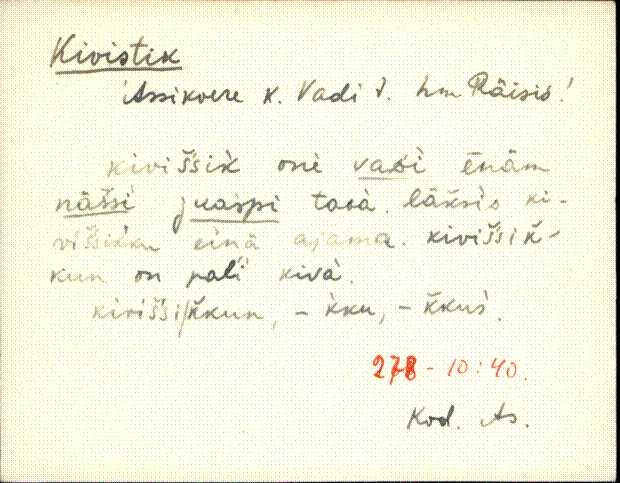 Kivistik
Assikvere k. Vadi t. hm Räisis!
kivišsik̀ onè vaᴅì ēnäm
näššì juaśpi tasà. läksìo ki-
višsik̀ku einä ajama. kivišsiǩ-
kun on pal'l'i kivà.
kivišsi/ǩkun, – k̀ku, – ǩkuì.
278 - 10:40.
Kod. As.